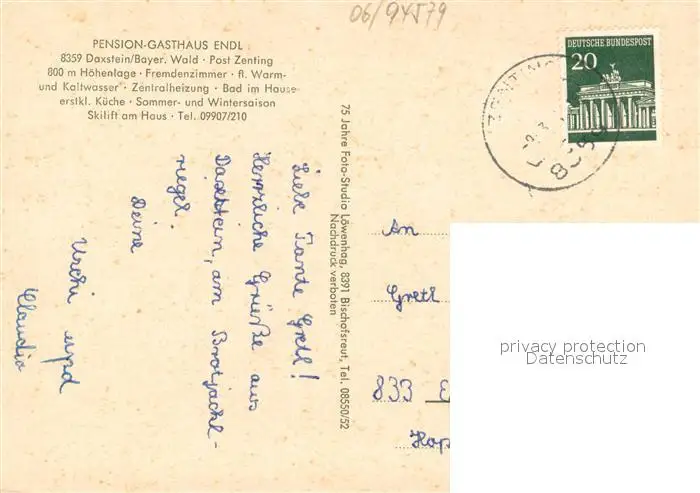 06/94579
PENSION-GASTHAUS ENDL
8359 Daxstein/Bayer. Wald · Post Zenting
800 m Höhenlage · Fremdenzimmer · fl. Warm-
und Kaltwasser · Zentralheizung · Bad im Hause
erstkl. Küche · Sommer- und Wintersaison
Skilift am Haus · Tel. 09907/210
DEUTSCHE BUNDESPOST
20
75 Jahre Foto-Studio Löwenhag, 8391 Bischofsreut, Tel. 08550/52
Nachdruck verboten
Liebe Tante Gretl!
Herrliche Grüße aus
Daxstein, am Brotjackl-
riegel.
Deine
Uschi und
Claudia
An
Gretl
833 E
Hop
privacy protection
Datenschutz